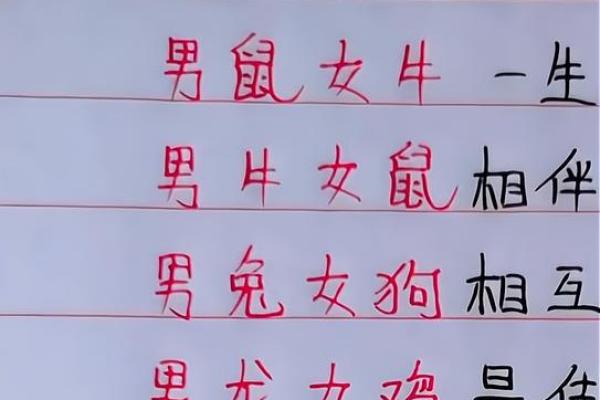 男鼠女牛 一生
男牛女鼠相伴
男兔女狗相互
男龙女鸡是佳